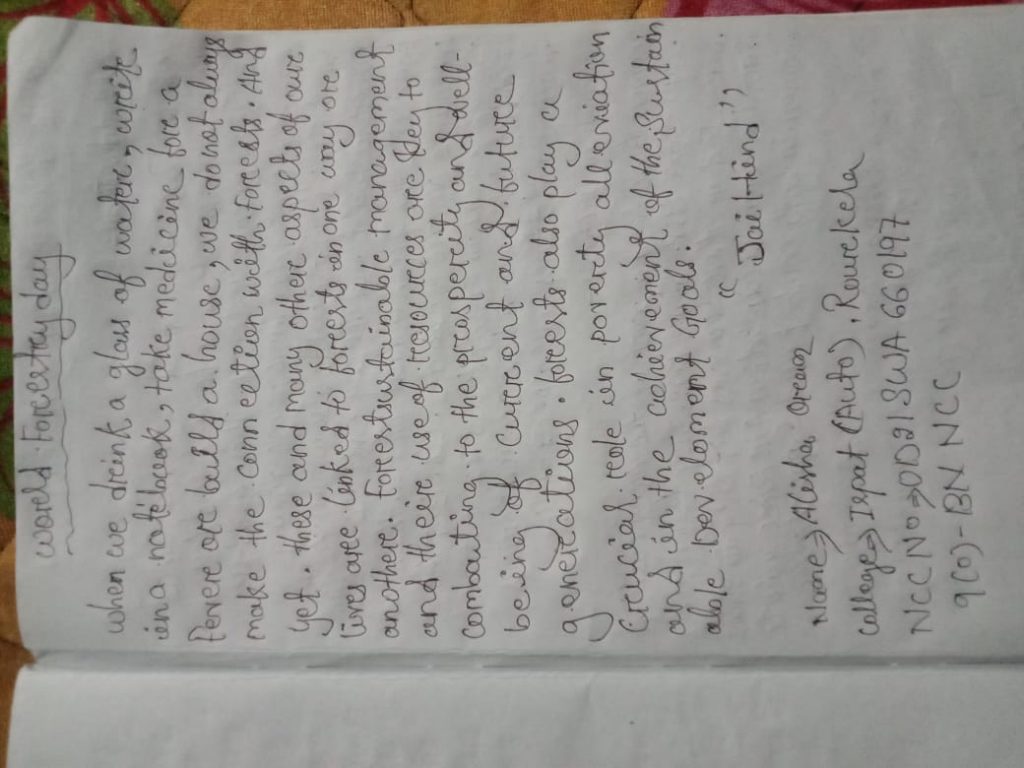 World Forestry day
when we drink a glass of water, write
in a notebook, take medicine fore a
Fevere ore build a house, we donot always
make the connection with forests. And
yet. these and many othere aspects of oure
lives aree linked to forests in one way ore
anothere. Forest sustainable management
and theire use of resources are key to
combating to the prosperity and well-
being of current and future
generations. forests also play a
Crucial role in poverty alleviation
and in the achievement of the Sustain
able Develoment Goals.
"Jai Hind"
Name → Alisha Oram
College → Ispat (Auto), Rourkela
NCC No → OD21SWA660197
9(o)-BN NCC